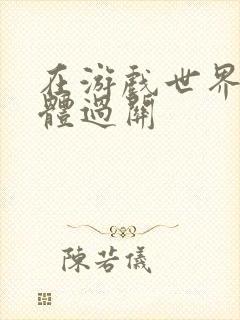 在游戲世界
體過關
陳若儀